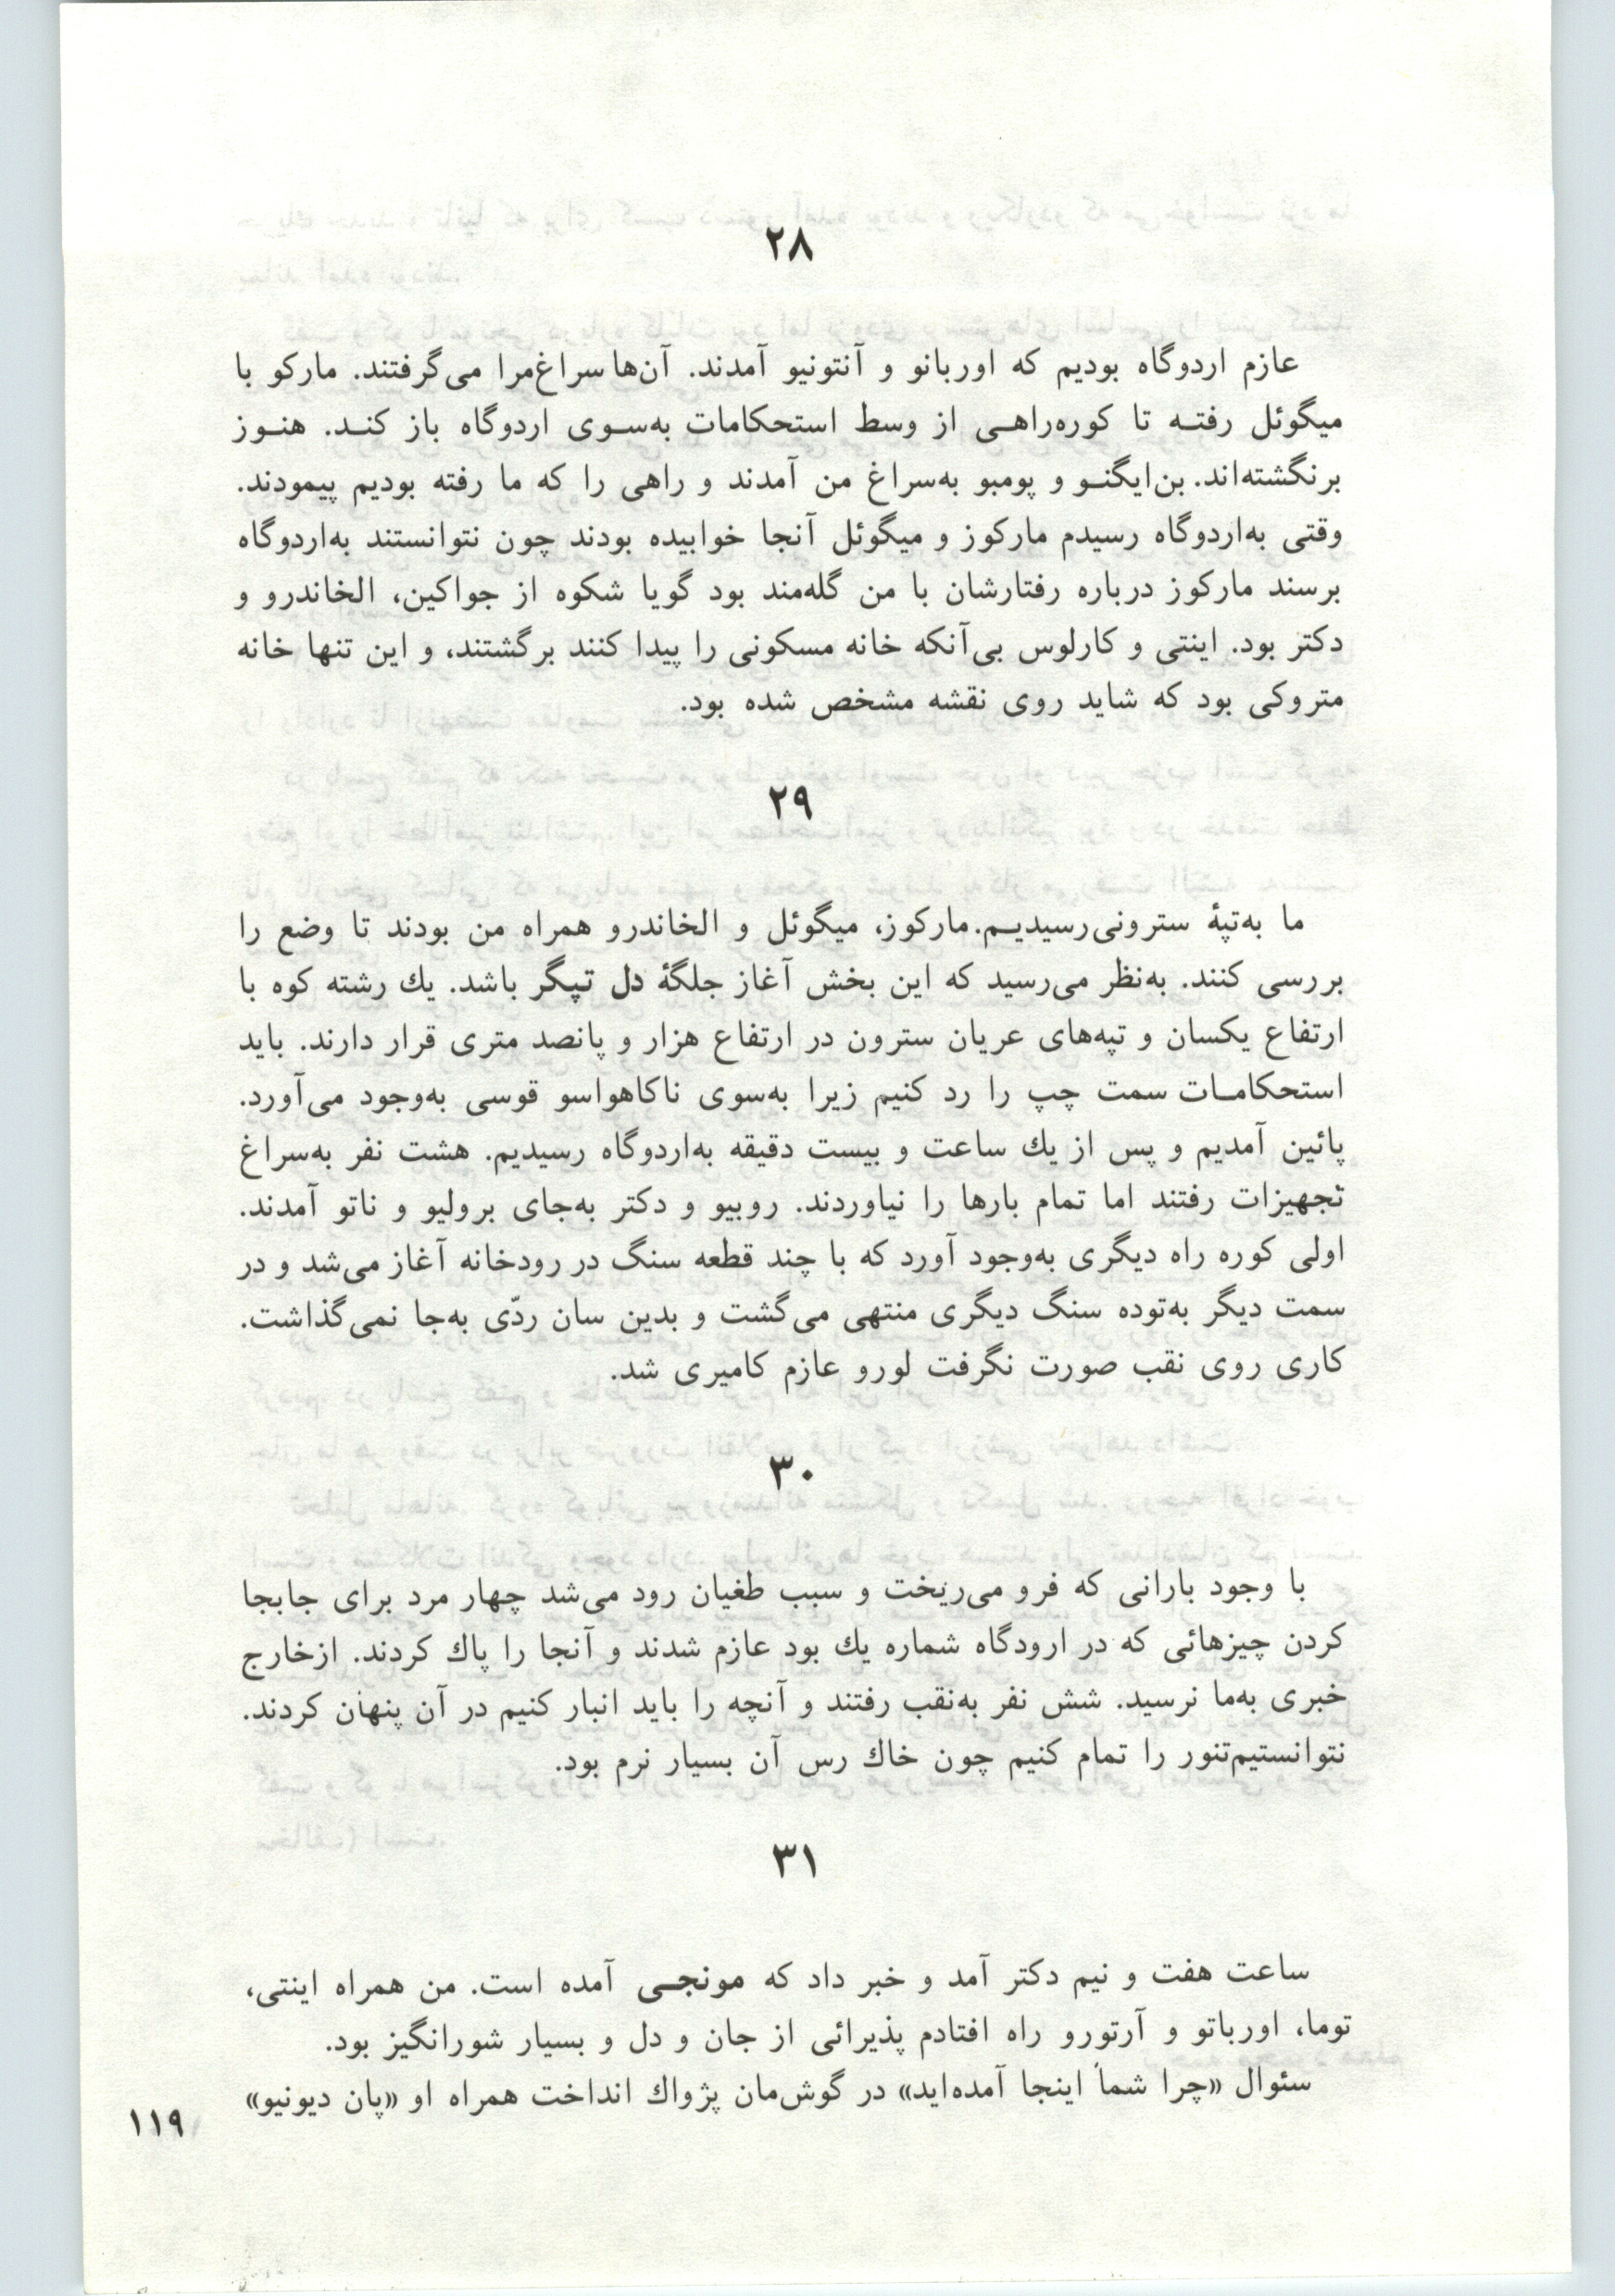 ۲۸
عازم اردوگاه بودیم که اوربانو و آنتونیو آمدند. آن‌ها سراغ‌مرا می‌گرفتند. مارکو با
میگوئل رفتـه تا کوره‌راهـی از وسط استحکامات به‌سـوی اردوگاه باز کنـد. هنـوز
برنگشته‌اند. بن‌ایگنـو و پومبو به‌سراغ من آمدند و راهی را که ما رفته بودیم پیمودند.
وقتی به‌اردوگاه رسیدم مارکوز و میگوئل آنجا خوابیده بودند چون نتوانستند به‌اردوگاه
برسند مارکوز درباره رفتارشان با من گله‌مند بود گویا شکوه از جواکین، الخاندرو و
دکتر بود. اینتی و کارلوس بی‌آنکه خانه مسکونی را پیدا کنند برگشتند، و این تنها خانه
متروکی بود که شاید روی نقشه مشخص شده بود.
۲۹
ما به‌تپهٔ سترونی‌رسیدیـم. مارکوز، میگوئل و الخاندرو همراه من بودند تا وضع را
بررسی کنند. به‌نظر می‌رسید که این بخش آغاز جلگهٔ دل تپگر باشد. یك رشته کوه با
ارتفاع یکسان و تپه‌های عریان سترون در ارتفاع هزار و پانصد متری قرار دارند. باید
استحکامـات سمت چپ را رد کنیم زیرا به‌سوی ناکاهواسو قوسی به‌وجود می‌آورد.
پائین آمدیم و پس از یك ساعت و بیست دقیقه به‌اردوگاه رسیدیم. هشت نفر به‌سراغ
تجهیزات رفتند اما تمام بارها را نیاوردند. روبیو و دکتر به‌جای برولیو و ناتو آمدند.
اولی کوره راه دیگری به‌وجود آورد که با چند قطعه سنگ در رودخانه آغاز می‌شد و در
سمت دیگر به‌توده سنگ دیگری منتهی می‌گشت و بدین سان ردّی به‌جا نمی‌گذاشت.
کاری روی نقب صورت نگرفت لورو عازم کامیری شد.
۳۰
با وجود بارانی که فرو می‌ریخت و سبب طغیان رود می‌شد چهار مرد برای جابجا
کردن چیزهائی که در ارودگاه شماره یك بود عازم شدند و آنجا را پاك کردند. ازخارج
خبری به‌ما نرسید. شش نفر به‌نقب رفتند و آنچه را باید انبار کنیم در آن پنهان کردند.
نتوانستیم‌تنور را تمام کنیم چون خاك رس آن بسیار نرم بود.
۳۱
ساعت هفت و نیم دکتر آمد و خبر داد که مونجـی آمده است. من همراه اینتی،
توما، اورباتو و آرتورو راه افتادم پذیرائی از جان و دل و بسیار شورانگیز بود.
سئوال «چرا شما اینجا آمده‌اید» در گوش‌مان پژواك انداخت همراه او «پان دیونیو»
۱۱۹